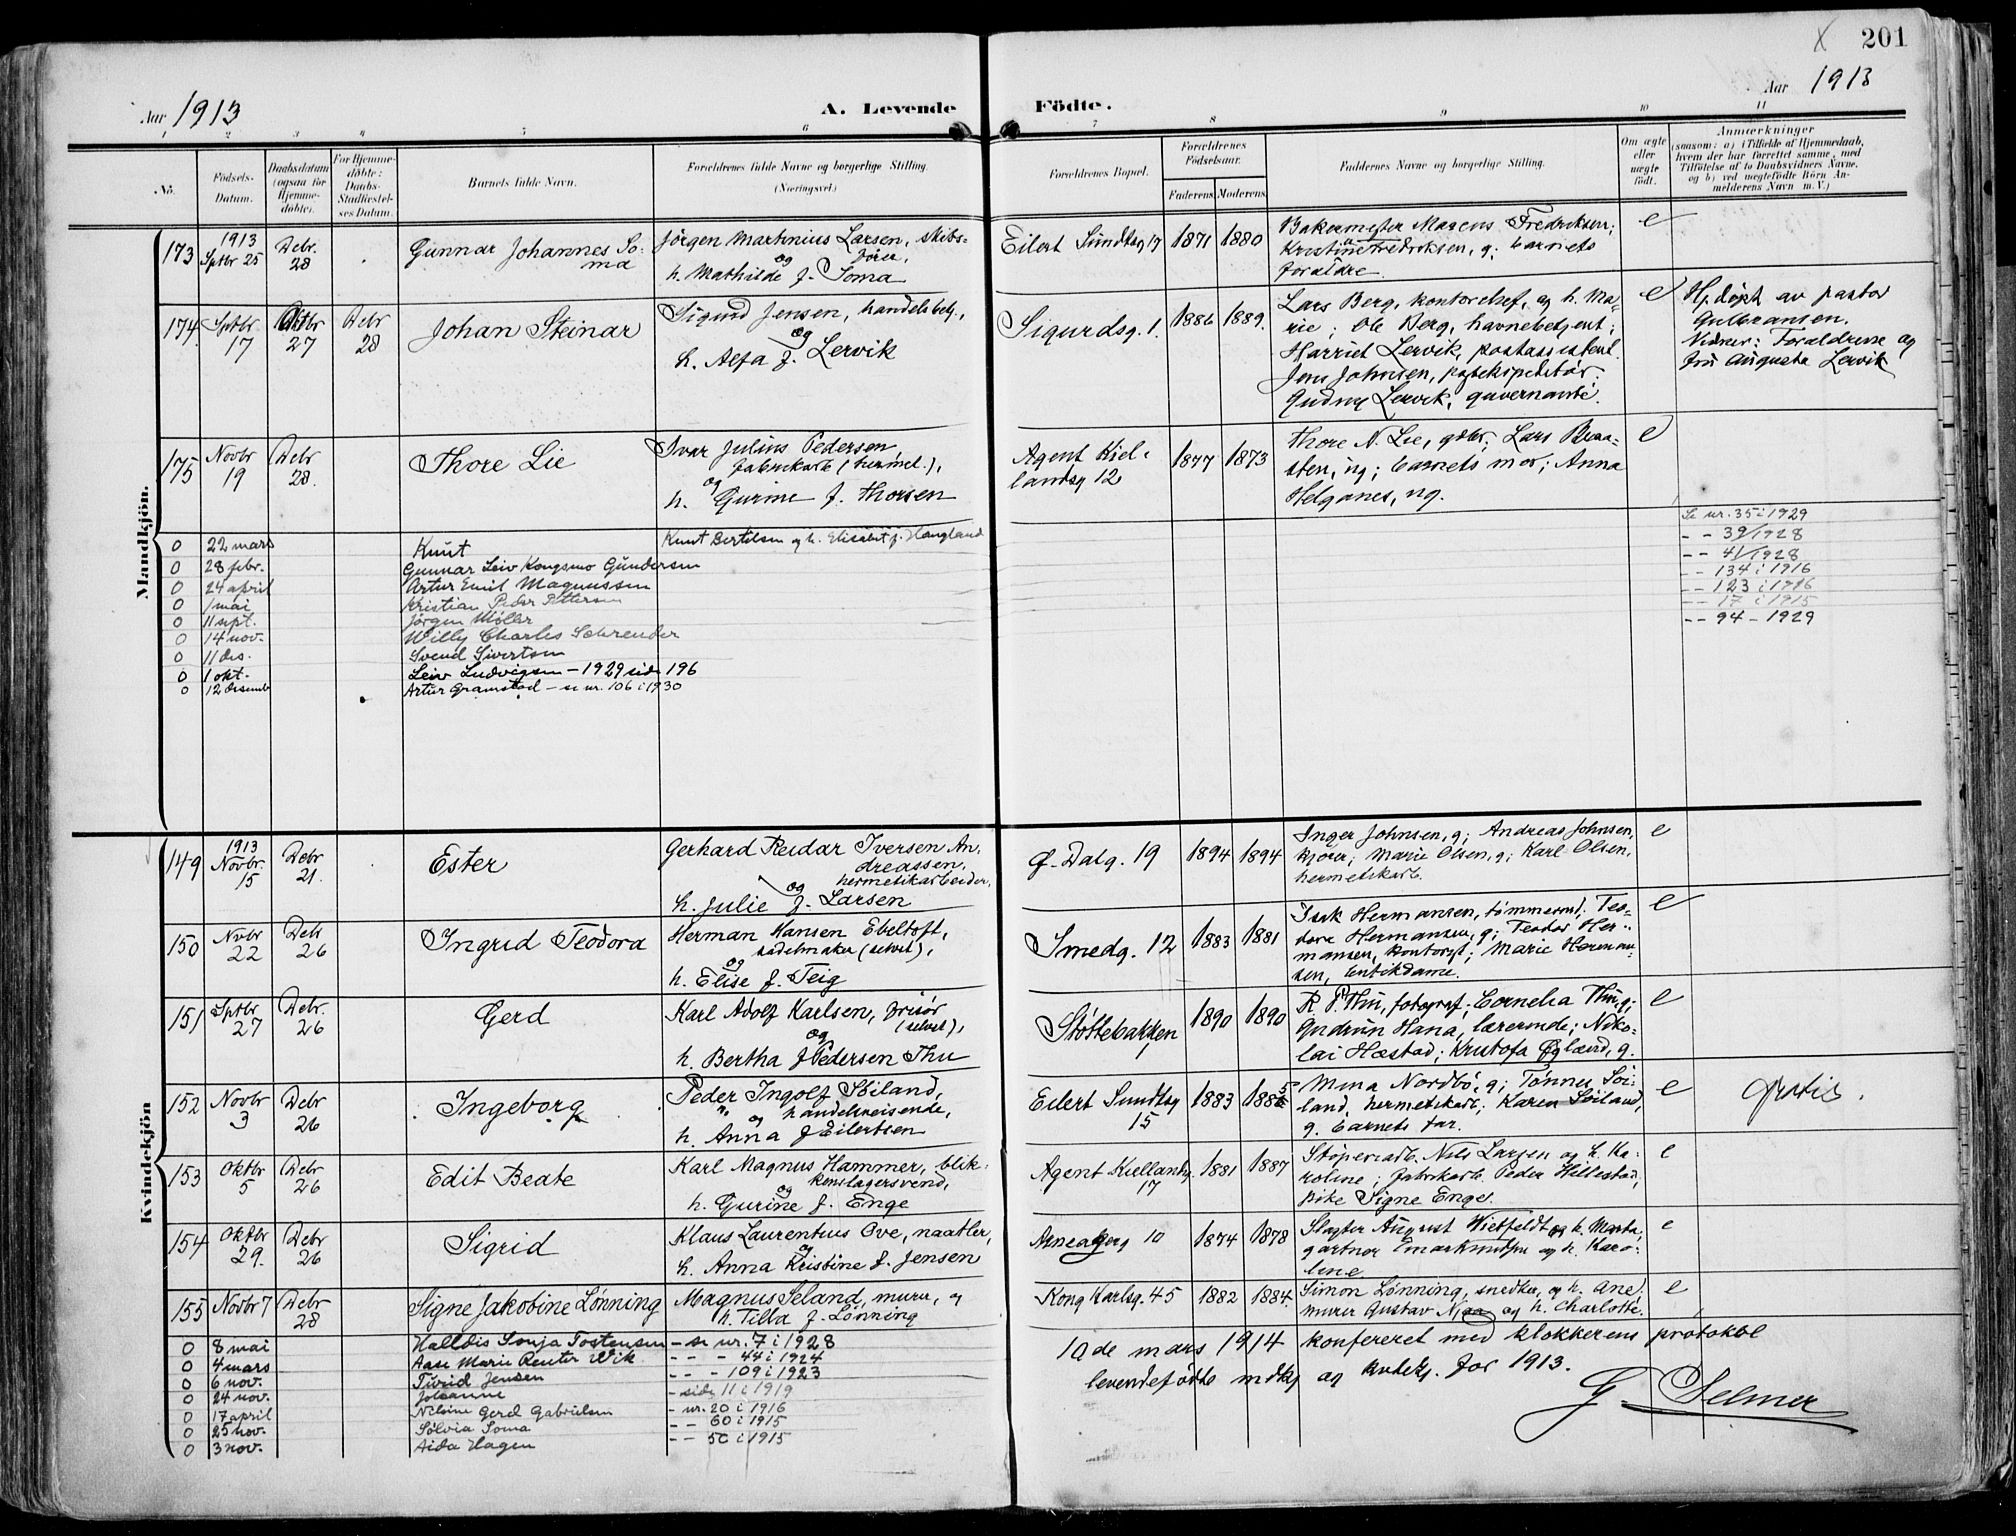 201
Aar 1913
A. Levende Födte.
Aar 1913
1 2 3 4 5 6 7 8 9 10 11
No.
Födsels-Datum.
Daabsdatum (ogsaa for Hjemme-döbte).
For Hjemme-döbte: Daabs-Stadfæstel-ses Datum.
Barnets fulde Navn.
Forældrenes fulde Navne og borgerlige Stilling. (Næringsvei.)
Forældrenes Bopæl.
Forældrenes Födselsaar.
Faderens Moderens
Faddernes Navne og borgerlige Stilling.
Om ægte eller uægte födt.
Anmærkninger
(saasom: a) i Tilfælde af Hjemmedaab,
hvem der har forrettet samme, med
Tilföielse af to Daabsvidners Navne.
og b) ved uægtefödte Börn An-
melderens Navn m. V.)
Mandkjön.
173 1913 Sptbr 25 Debr. 28 Gunnar Johannes So-
ma
Jörgen Martinius Larsen, skibs-
förer,
og
h. Mathilde f. Soma
Eilert Sundtsg 17 1871 1880
Bakermester Magens Fredriksen;
Kristine Fredriksen, g; barnets
foraldre.
e
174. Sptbr 17 Oktbr 27 Debr 28 Johan Steinar
Sigurd Jensen, handelsbetj.,
og
h. Alfa f. Lervik
Sigurdsg. 1. 1886 1889.
Lars Berg, kontorchef, og h. Ma-
rie; Ole Berg, havnebetjent;
Harriet Lervik, postassistent.
Jens Johnsen,
Gudny Lervik, guvernante.
e
Hj. döpt av pastor
Gulbransen.
Vidner: Foraldrene og
fru Augusta Lervik
175 Novbr 19 Debr 28. Thore Lie
Ivar Julius Pedersen
fabrikarb (hermet.),
og
h. Gurine f. Thorsen
Agent Kiel-
landsg 12
1877 1873
Thore N. Lie, gdbr; Lars Braa-
sten, ug; barnets mor; Anna
Helganes, ug.
e
0 22 mars Knut Knut Bertelsen og h. Elisabet f. Haugland Se nr. 35 i 1929
0 28 febr. Gunnar Leiv Kongsmo Gundersen - - 39/1928
0 24 april Artur Emil Magnussen - - 41/1928
0 1 mai Kristian Peder Pettersen - - 134 i 1916
0 11 sept. Jörgen Møller - - 123 i 1916
0 14 nov. Willy Charles Schreuder - - 17 i 1915
0 11 des. Svend Sivertsen - - 94 - 1929
0 1 okt. Leiv Ludvigsen - 1929 side 196
0 12 desemb Artur Gramstad - se nr. 106 i 1930
Kvindekjön
149 1913 Novbr. 15 Debr. 21. Ester
Gerhard Reidar Iversen An-
dreassen,
hermetikarbeider,
og
h. Julie f. Larsen
Ø. Dalg. 19 1894 1894
Inger Johnsen, g; Andreas Johnsen,
kjører; Marie Olsen, g; Karl Olsen,
hermetikarb.
e
150 Novbr 22 Debr 26 Ingrid Teodora
Herman Hansen Ebeltoft,
sadelmaker (selvst),
og
h. Elise f. Teig
Smedg. 12 1883 1881
Isak Hermansen, tømmermd; Teo-
dora Hermansen, g; Teodor Her-
mansen, kontorist; Marie Herman-
sen, butikdame.
e
151 Sptbr. 27 Debr. 26 Gerd
Karl Adolf Karlsen, frisör
(selvst),
og
h. Bertha f Pedersen Thu
Støttebakken 1890 1890
R. P. Thu, fotograf; Cornelia Thu, g;
Gudrun Hana, lærerinde; Niko-
lai Hæstad; Kristofa Øglænd, g.
e
152 Novbr 3 Debr 26 Ingeborg
Peder Ingolf Söiland,
handelsreisende,
og
h. Anna f Eilertsen
Eilert Sundtsg
15
1883 1885
Mina Nordbö, g; Tønnes Söi-
land, hermetikarb; Karen Söiland,
g. barnets far.
e
gratis.
153 Oktbr 5 Debr 26 Edit Beate
Karl Magnus Hammer, blik-
kenslagersvend,
og
h. Gurine f. Enge
Agent Kiellandsg
17
1881 1887
Støperiarb. Nils Larsen og h. Ka-
roline; fabrikarb. Peder Hillestad,
pike Signe Enge.
e
154 Oktbr 29. Debr 26 Sigrid
Klaus Laurentius Ove, naatler,
og
h. Anna Kristine f. Jensen
Arneagerg 10 1874 1878
Slagter August Wietfeldt og h. Marta,
gartner Emar Knudsen og h. Karo-
line
e
155 Novbr 7 Debr 28 Signe Jakobine Lönning
Magnus Seland, murer, og
h. Tilla f. Lönning
Kong Karlsg. 45 1882 1884.
Simon Lønning, snedker, og h. Ane;
murer Gustav og h. Charlotte.
e
0 8 mai Halldis Sonja Tostensen - se nr. 7 i 1928
0 4 mars Aase Marie Reuter Wik - - - 44 i 1924
0 6 nov. Turid Jensen - - - 109 i 1923
0 24 nov. Johanne - side 11 i 1919
0 17 april Nelsine Gerd Gabrielsen - nr. 20 i 1916
0 25 nov. Sølvia Soma - - 60 i 1915
0 3 nov. Aida Hagen - - 50 i 1915
10de mars 1914 konfereret med klokkerens protokol
levendefødte mdkj og kvdekj. for 1913.
G. Selmer